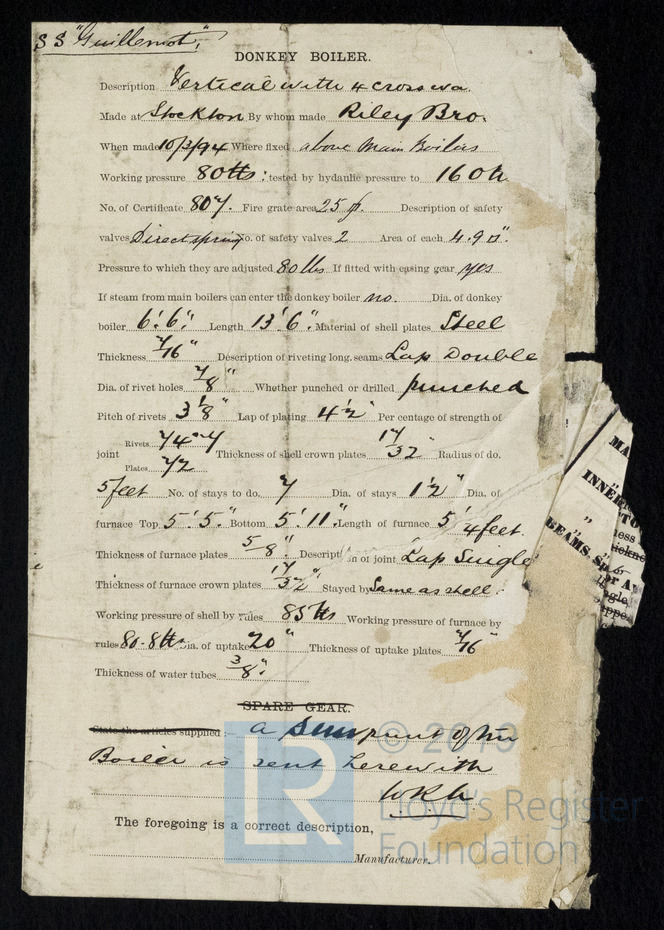 SS "Guillemot",
DONKEY BOILER.
Description Vertical with 4 cross wa
Made at Stockton By whom made Riley Bro.
When made 10/3/94 Where fixed above Main Boilers
Working pressure 80 lbs; tested by hydaulic pressure to 160 lb
No. of Certificate 807. Fire grate area 25 Description of safety
valves Direct spring No. of safety valves 2 Area of each 4.9 □".
Pressure to which they are adjusted 80 lbs If fitted with easing gear yes
If steam from main boilers can enter the donkey boiler no. Dia. of donkey
boiler 6'.6". Length 13'6". Material of shell plates Steel
Thickness 7/16" Description of riveting long. seams Lap Double
Dia. of rivet holes 7/8" Whether punched or drilled punched
Pitch of rivets 3 1/8" Lap of plating 4 1/2" Per centage of strength of
joint Rivets 74 Thickness of shell crown plates 17/32" Radius of do.
Plates 72
5 feet No. of stays to do. 7 Dia. of stays 1 1/2" Dia. of
furnace Top 5'.5". Bottom 5'.11". Length of furnace 5' 4 feet.
Thickness of furnace plates 5/8". Description of joint Lap Single
Thickness of furnace crown plates 17/32" Stayed by Same as shell.
Working pressure of shell by rules 85 lbs Working pressure of furnace by
rules 80.8 lbs Dia. of uptake 20" Thickness of uptake plates 7/16"
Thickness of water tubes 3/8".
SPARE GEAR.
State the articles supplied:— a print of the
Boiler is sent herewith
The foregoing is a correct description,
Manufacturer.
MA
INNER
"
BEAMS,
© 2019
LR
Lloyd's Register
Foundation